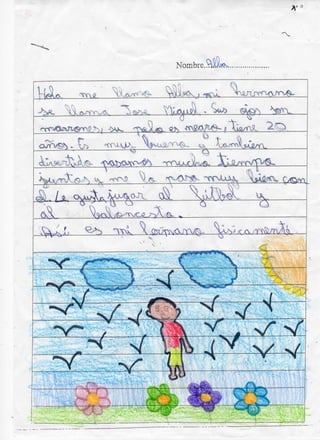 Nombre. Alba
Hola me llama Alba, mi hermana
se llama Jose Miguel. Sus ojos son
marrones, su pelo es negra, tiene 20
años. Es muy buena y tambien
divertida pasamos mucha tiempo
juntos y me lo paso muy bien con
el. Le gusta jugar al futbol y
al baloncesto.
Asi es mi hermano fisicamente